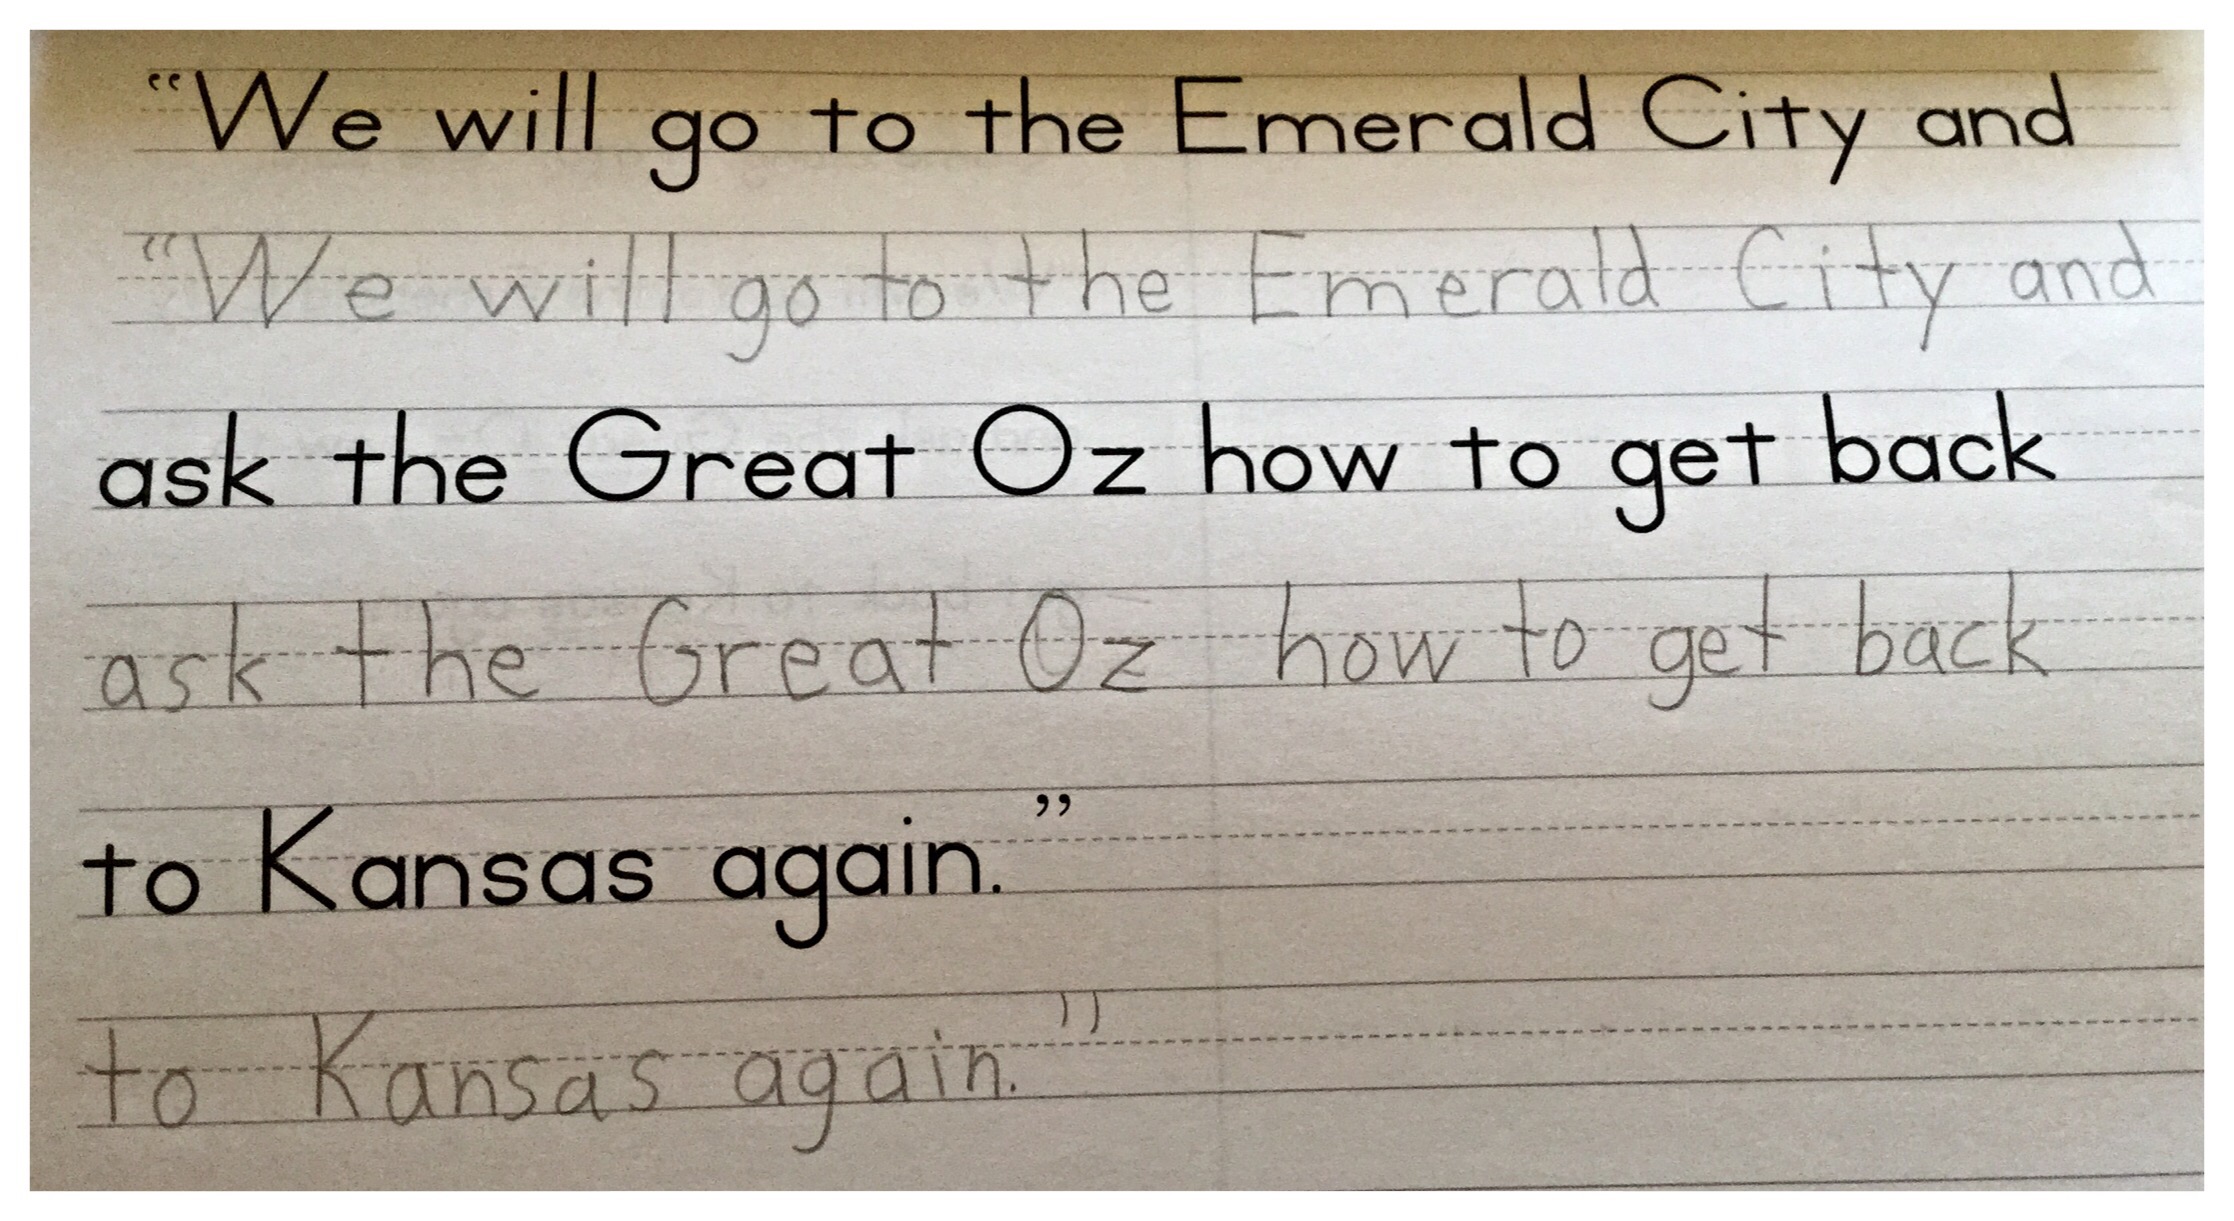 “We will go to the Emerald City and
“We will go to the Emerald City and
ask the Great Oz how to get back
ask the Great Oz how to get back
to Kansas again.”
to Kansas again.”